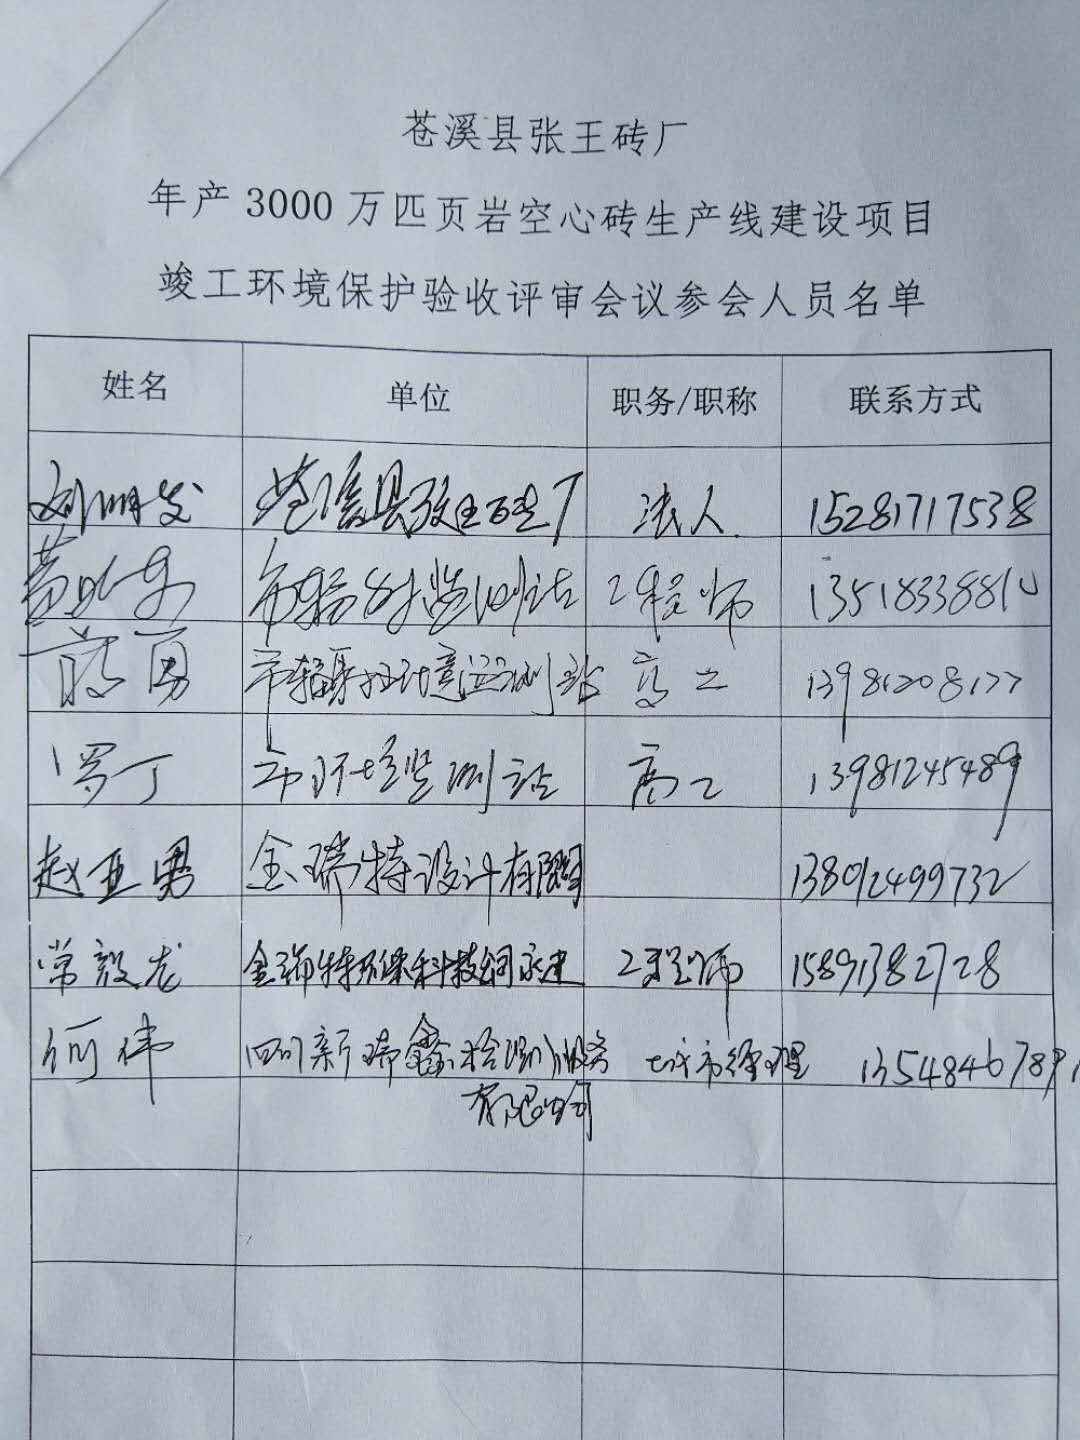 苍溪县张王砖厂
年产 3000 万匹页岩空心砖生产线建设项目
竣工环境保护验收评审会议参会人员名单
姓名 单位 职务/职称 联系方式
刘明发 苍溪县张王砖厂 法人 15281717538
市辐射监测站 工程师
蒋勇 市辐射环境监测站 高工 13981208177
罗丁 市环境监测站 高工 13981245489
赵亚男 金瑞特设计有限公司 138012499732
常毅龙 金瑞特环保科技 工程师 15891382728
何伟 四川新瑞鑫检测服务 城市经理 1354846789
有限公司